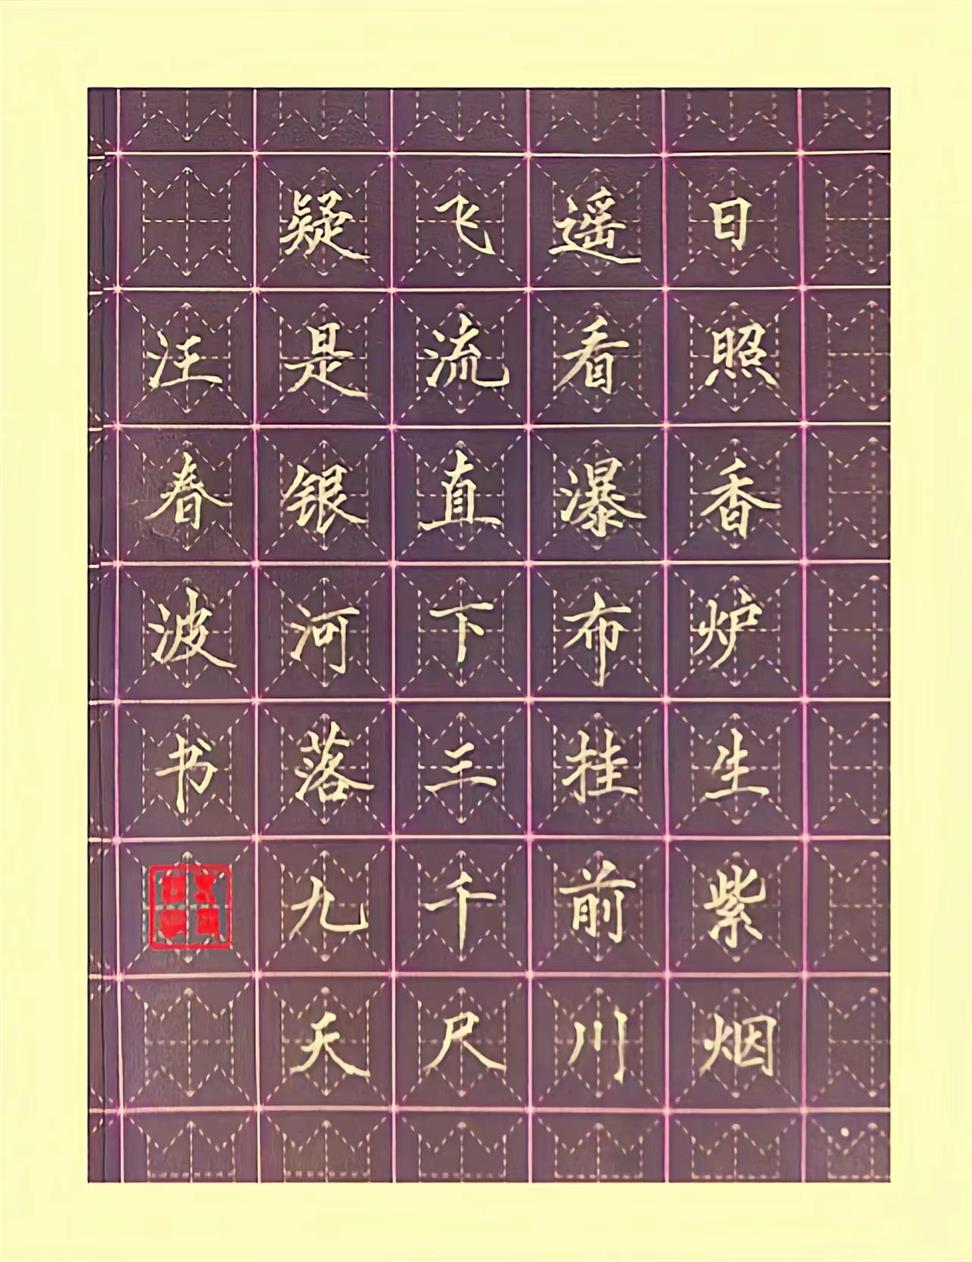 日照香炉生紫烟
遥看瀑布挂前川
飞流直下三千尺
疑是银河落九天
汪春波书